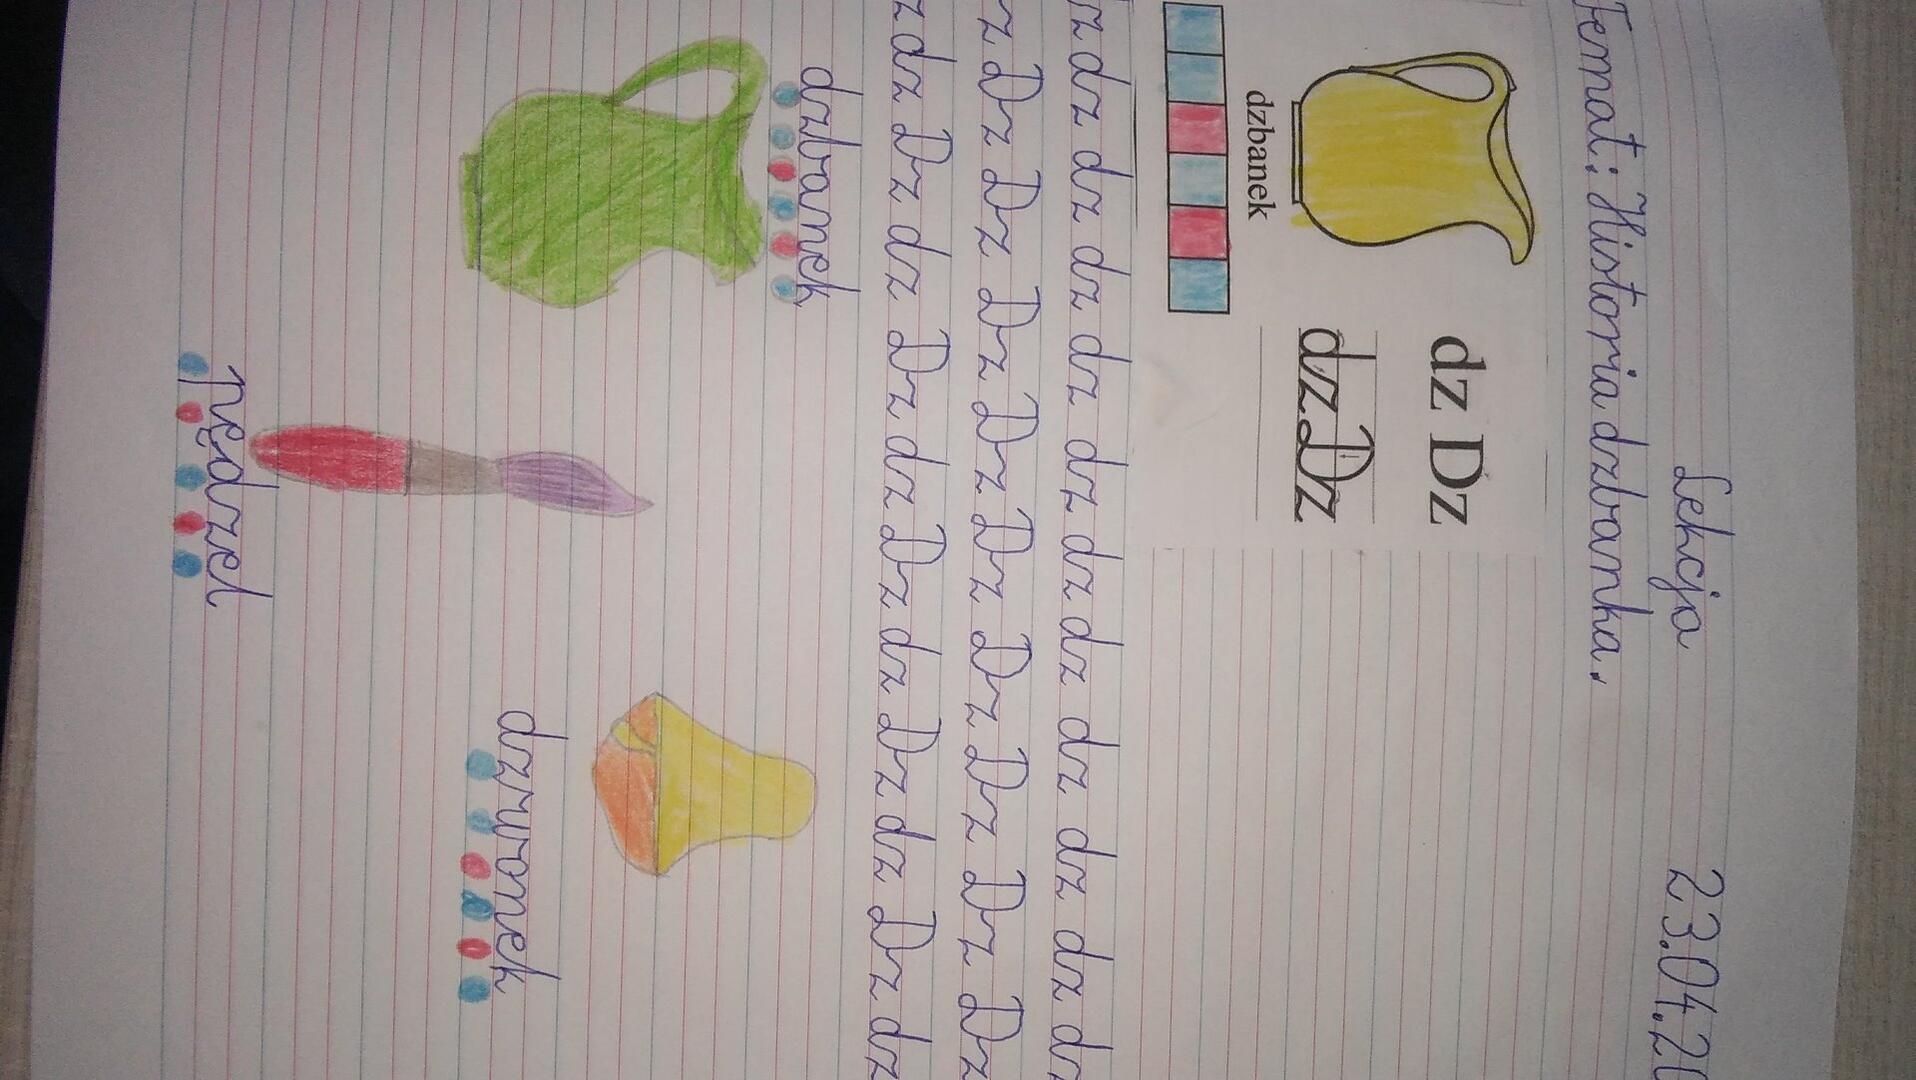 Lekcja 23.04.20
Temat: Historia dzbanka.
dz Dz
dz Dz
dzbanek
z dz dz dz dz dz dz dz dz dz dz dz
z Dz Dz Dz Dz Dz Dz Dz Dz Dz
z dz Dz dz Dz dz Dz dz Dz dz Dz dz
dzbanek
dzwonek
pędzel